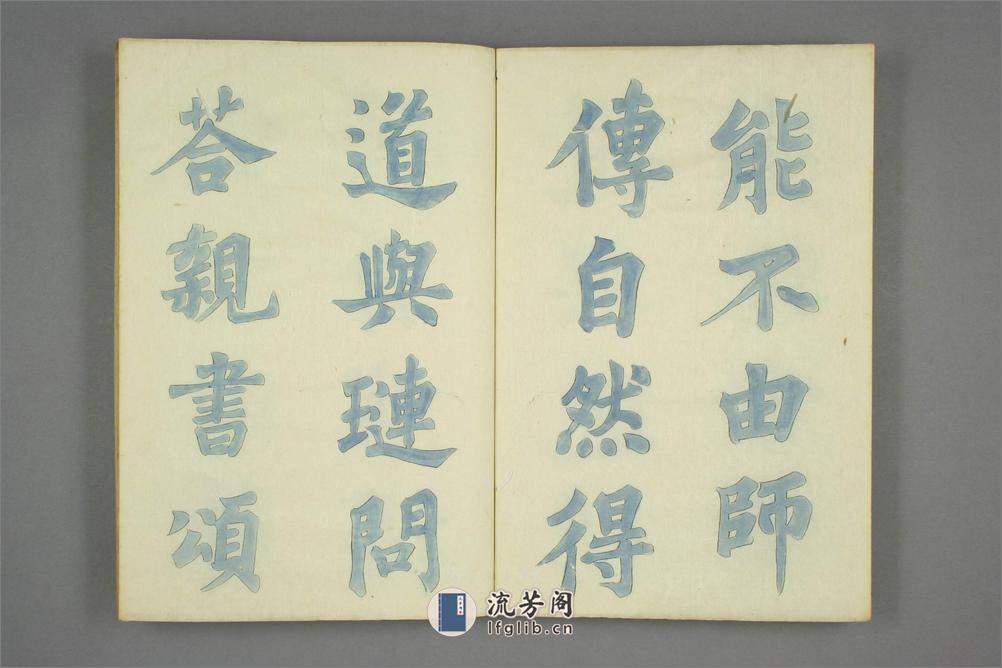 能不由師
傳自然得
道與璉問
荅親書頌
流芳阁
lfglib.cn